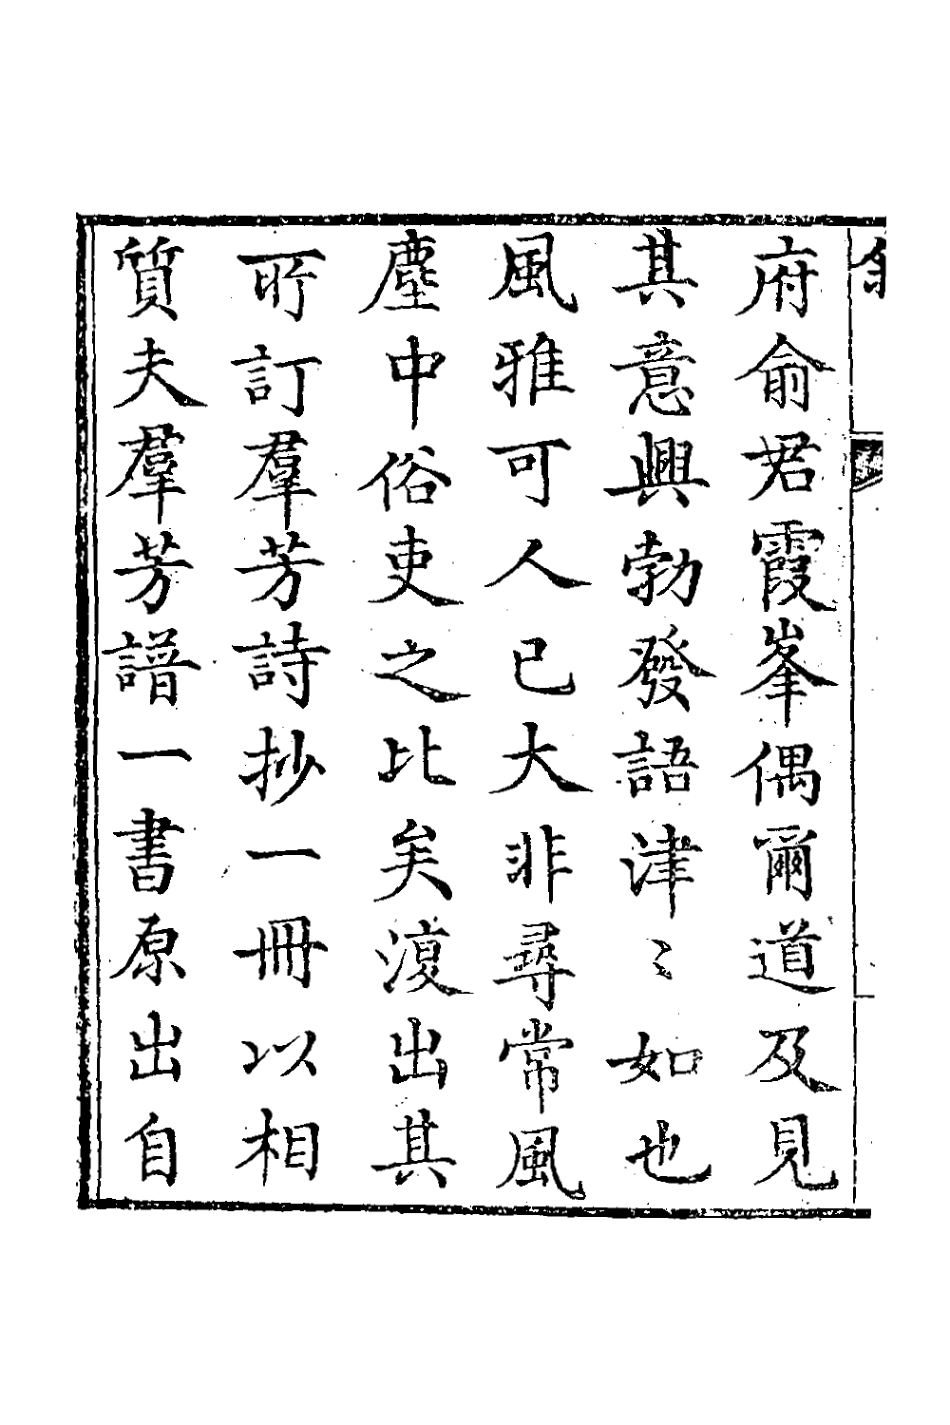 府俞君霞峯偶爾道及見
其意興勃發語津〻如也
風雅可人已大非尋常風
塵中俗吏之比矣復出其
所訂羣芳詩抄一冊以相
質夫羣芳譜一書原出自